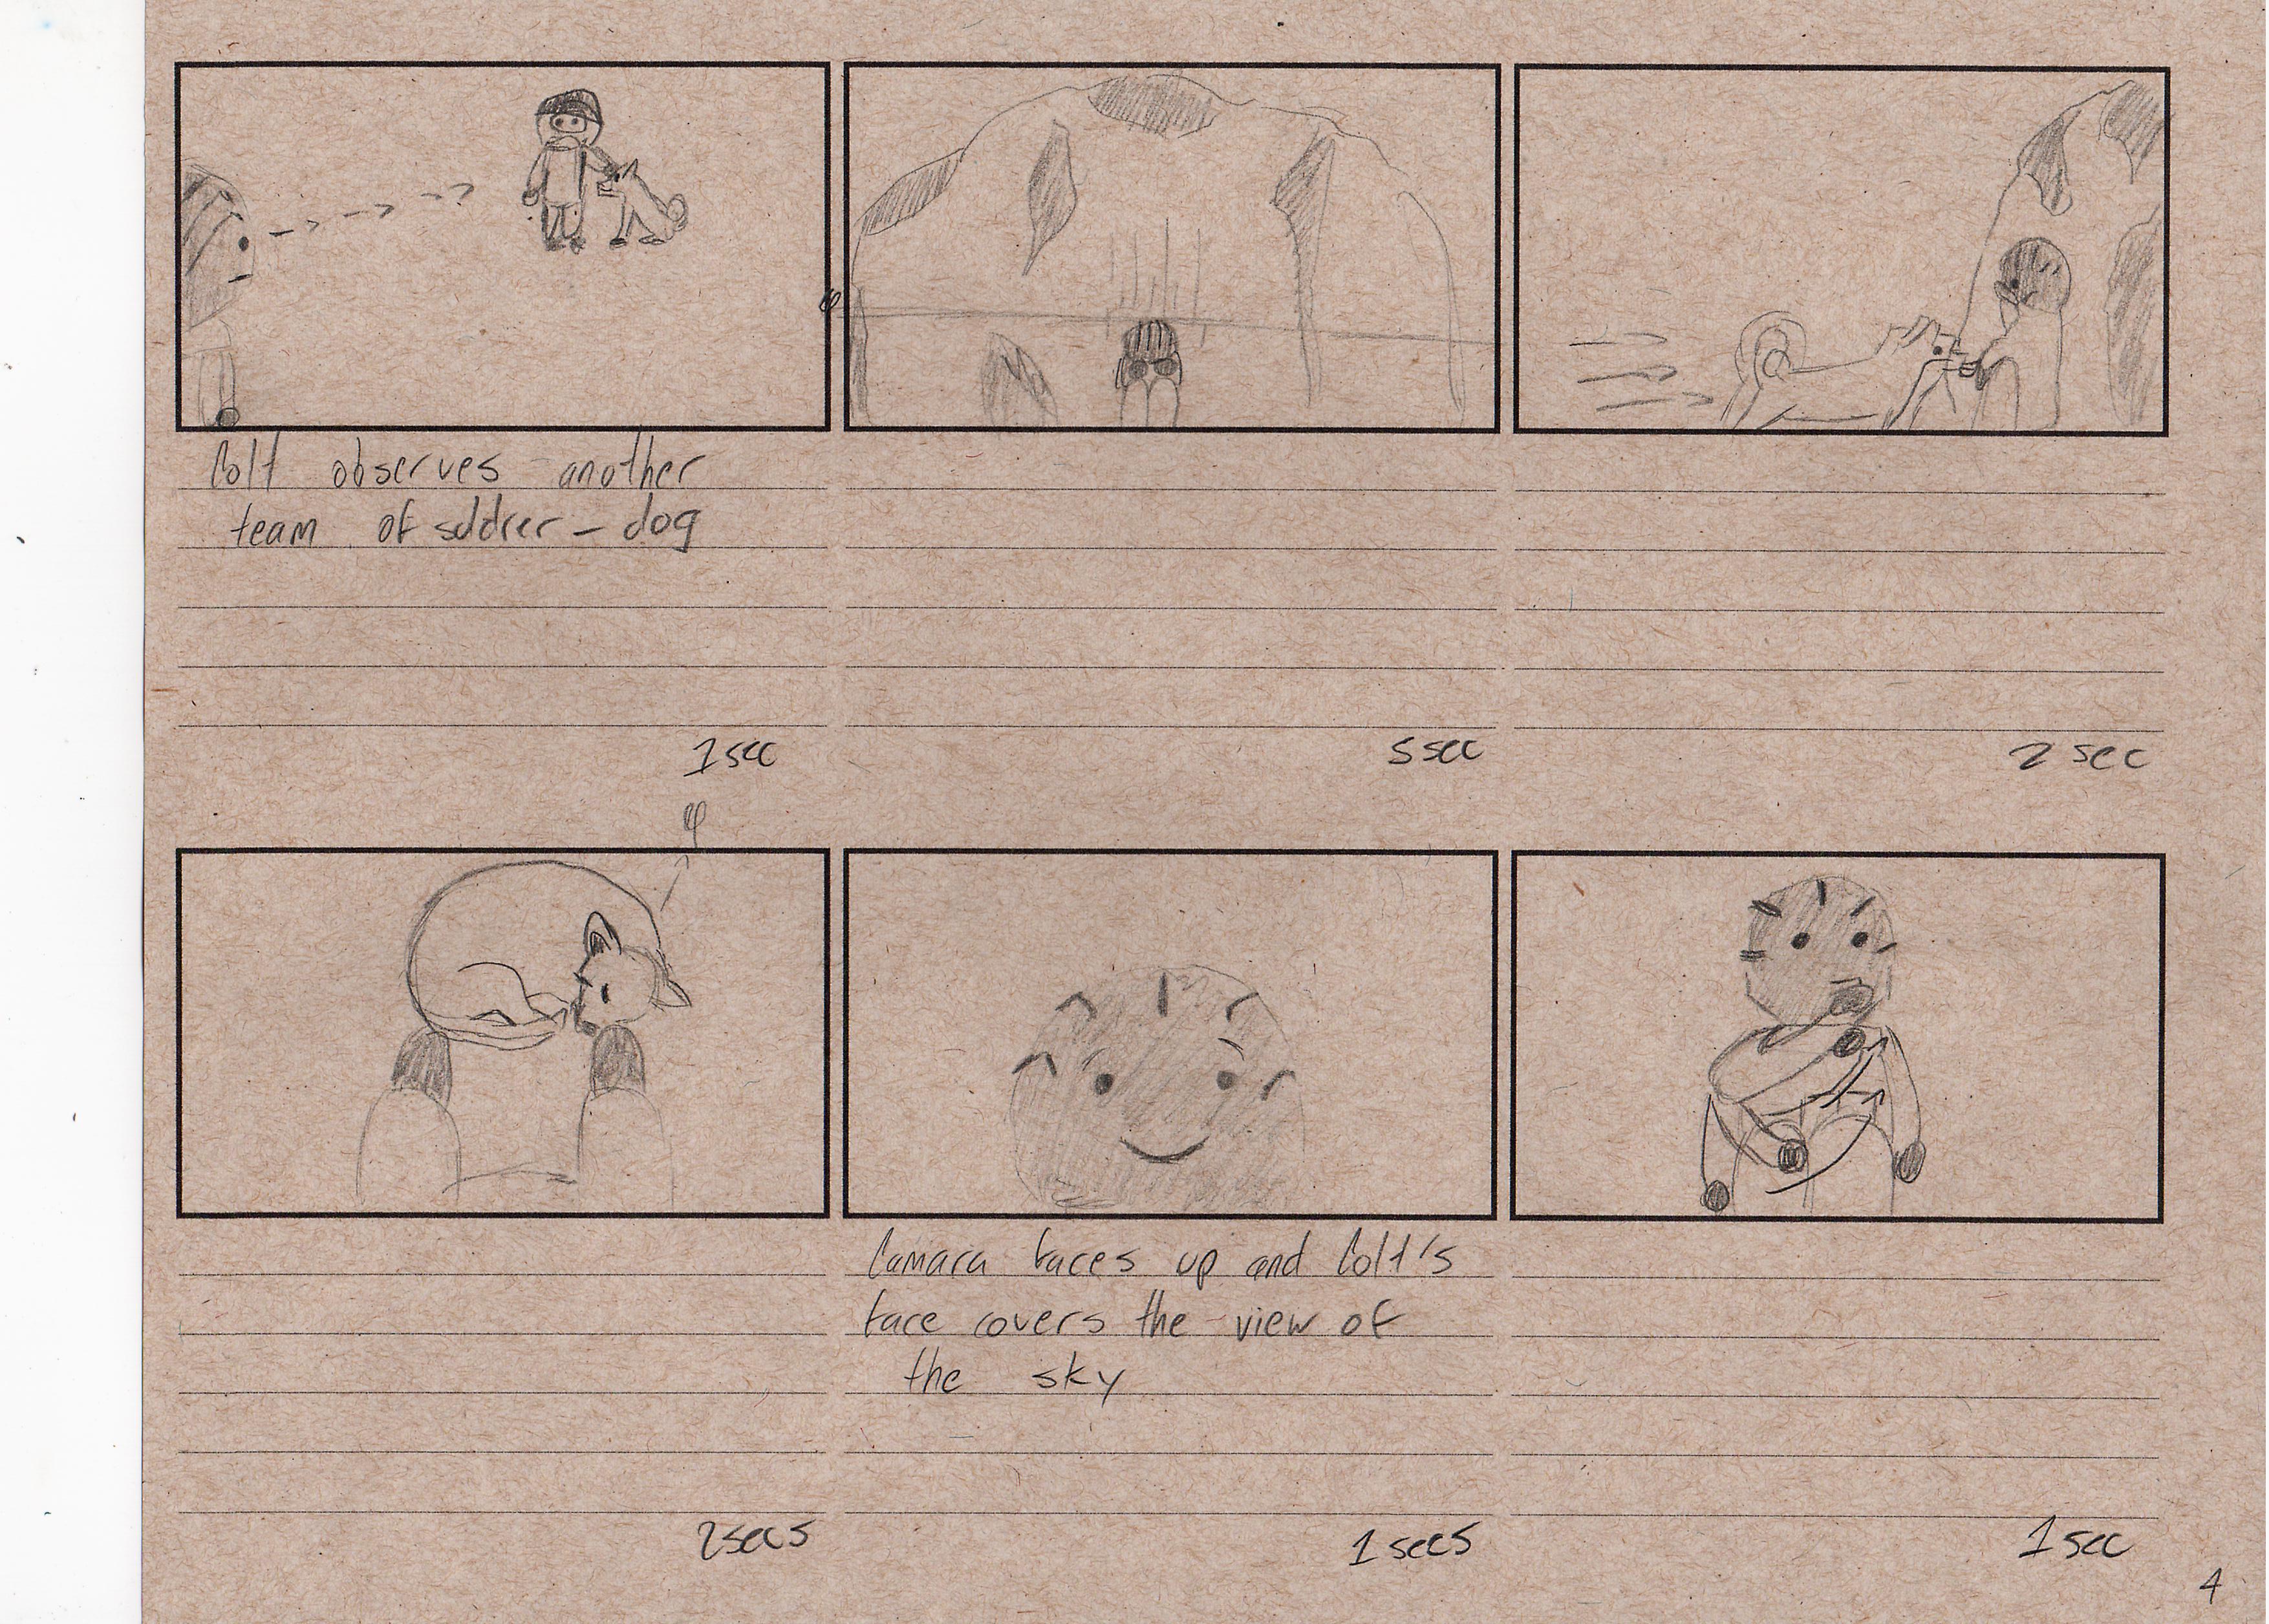 Colt observes another
team of soldier - dog
1 sec
5 sec
2 sec
Camara faces up and Colt's
face covers the view of
the sky
2 secs
1 secs
1 sec
4